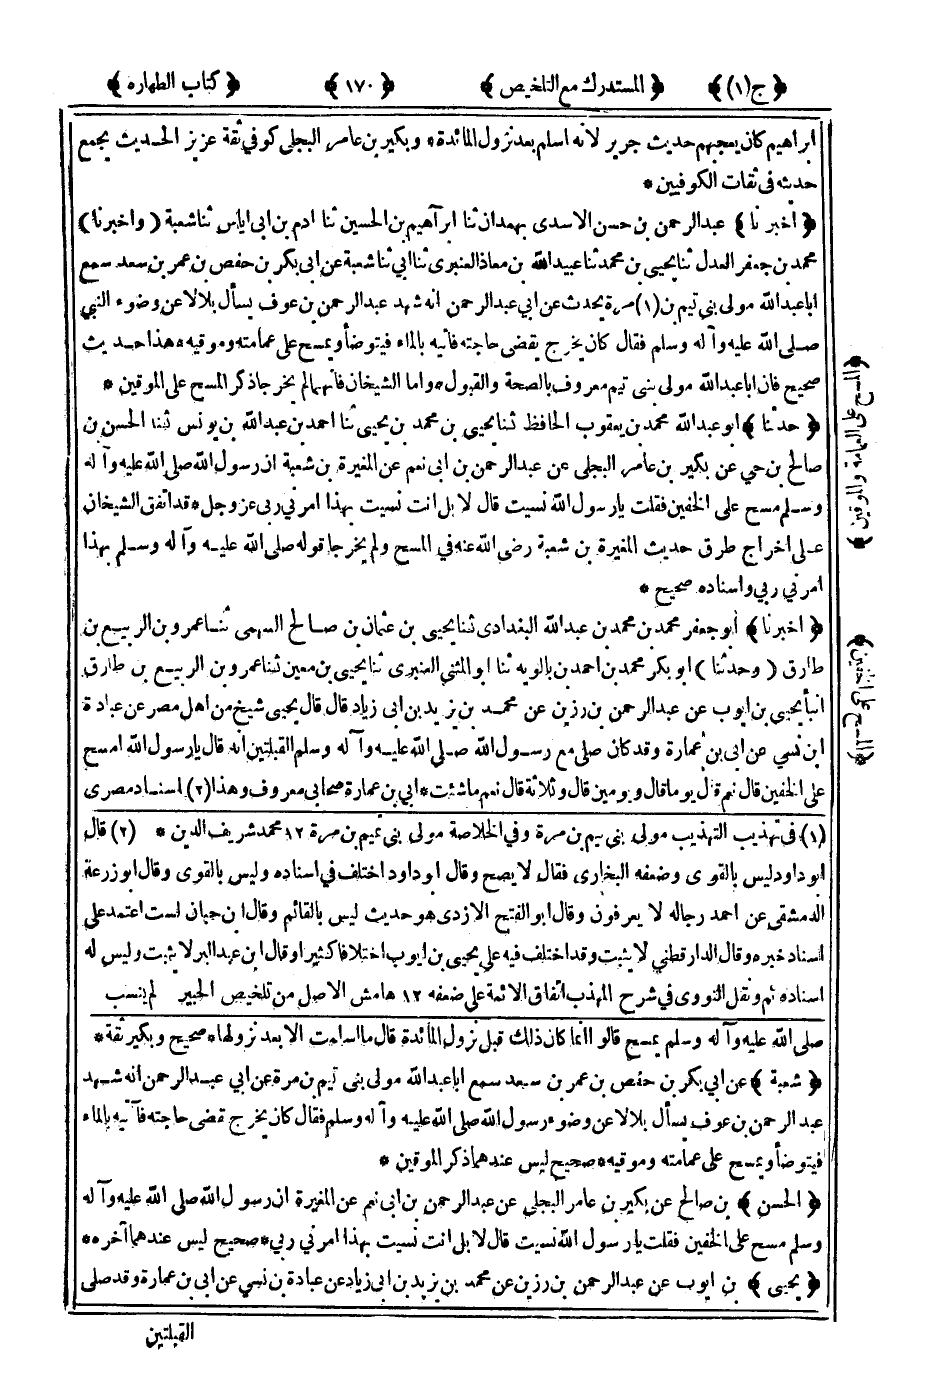 ﴿ج(١)﴾ ﴿المستدرك مع التلخيص﴾ ﴿١٧٠﴾ ﴿كتاب الطهاره﴾
ابراهيم كان يعجبهم حديث جرير لانه اسلم بعد نزول المائدة * و بكير بن عامر البجلى كوفى ثقة عزيز الحديث يجمع
حدثه فى ثقات الكوفيين *
﴿اخبرنا﴾ عبدالرحمن بن حسن الاسدى بهمدان ثنا ابرآهيم بن الحسين ثنا ادم بن ابى اياس ثنا شعبة (واخبرنا)
محمد بن جعفر العدل ثنا يحيى بن محمد ثنا عبيدالله بن معاذ العنبرى ثنا ابي ثنا شعبة عن ابى بكر بن حفص بن عمر بن سعد سمع
اباعبدالله مولى بني تيم بن (١) مرة يحدث عن ابي عبدالرحمن انه شهد عبدالرحمن بن عوف يسأل بلالا عن وضوء النبي
صلى الله عليه وآله وسلم فقال كان يخرج يقضى حاجته فآتيه بالماء فيتوضأ ويمسح على عمامته وموقيه * هذا حديث
صحيح فان اباعبدالله مولى بنى تيم معروف بالصحة والقبول * واما الشيخان فانهما لم يخرجا ذكر المسح على الموقين *
﴿حدثنا﴾ ابو عبدالله محمد بن يعقوب الحافظ ثنا يحيى بن محمد بن يحيى ثنا احمد بن عبدالله بن يونس ثنا الحسن بن
صالح بن حي عن بكير بن عامر البجلى عن عبدالرحمن بن ابى نعم عن المغيرة بن شعبة ان رسول الله صلى الله عليه وآله
وسلم مسح على الخفين فقلت يا رسول الله نسيت قال لا بل انت نسيت بهذا امرني ربى عز وجل * قد اتفق الشيخان
على اخراج طرق حديث المغيرة بن شعبة رضى الله عنه في المسح ولم يخرجا قوله صلى الله عليه وآله وسلم بهذا
امرني ربي واسناده صحيح *
﴿اخبرنا﴾ أبو جعفر محمد بن محمد بن عبدالله البغدادى ثنا يحيى بن عثمان بن صالح السهمى ثنا عمرو بن الربيع بن
طارق (وحدثنا) ابو بكر محمد بن احمد بن بالويه ثنا ابو المثنى العنبرى ثنا يحيى بن معين ثنا عمرو بن الربيع بن طارق
انبأ يحيى بن ايوب عن عبدالرحمن بن رزين عن محمد بن يزيد بن ابى زياد قال قال يحيى شيخ من اهل مصر عن عبادة
ابن نسي عن ابى بن عمارة وقد كان صلى مع رسول الله صلى الله عليه وآله وسلم القبلتين انه قال يا رسول الله امسح
على الخفين قال نعم قال يوما قال ويومين قال وثلاثة قال نعم ما شئت * ابي بن عمارة صحابى معروف وهذا (٢) اسناد مصرى
(١) فى تهذيب التهذيب مولى بني تيم بن مرة وفي الخلاصة مولى بني تميم بن مرة ١٢ محمد شريف الدين * (٢) قال
ابو داود ليس بالقوى وضعفه البخارى فقال لا يصح وقال ابو داود اختلف في اسناده وليس بالقوى وقال ابو زرعة
الدمشقى عن احمد رجاله لا يعرفون وقال ابو الفتح الازدى هو حديث ليس بالقائم وقال ابن حبان لست اعتمد على
اسناد خبره وقال الدار قطني لا يثبت وقد اختلف فيه على يحيى بن ايوب اختلافا كثيرا وقال ابن عبد البر لا يثبت وليس له
اسناد قائم ونقل النووى في شرح المهذب اتفاق الائمة على ضعفه ١٢ هامش الاصل من تلخيص الحبير لم ينسب
صلى الله عليه وآله وسلم يمسح قالوا انما كان ذلك قبل نزول المائدة قال ما اسلمت الا بعد نزولها * صحيح وبكير ثقة *
﴿شعبة﴾ عن ابي بكر بن حفص بن عمر بن سعد سمع اباعبدالله مولى بنى تيم بن مرة عن ابي عبدالرحمن انه شهد
عبدالرحمن بن عوف يسأل بلالا عن وضوء رسول الله صلى الله عليه وآله وسلم فقال كان يخرج تقضى حاجته فآتيه بالماء
فيتوضأ ويمسح على عمامته وموقيه * صحيح ليس عندهما ذكر الموقين *
﴿الحسن﴾ بن صالح عن بكير بن عامر البجلي عن عبدالرحمن بن ابى نعم عن المغيرة ان رسول الله صلى الله عليه وآله
وسلم مسح على الخفين فقلت يا رسول الله نسيت قال لا بل انت نسيت بهذا امرني ربي * صحيح ليس عندهما آخره *
﴿يحيى﴾ بن ايوب عن عبدالرحمن بن رزين عن محمد بن يزيد بن ابى زياد عن عبادة بن نسي عن ابى بن عمارة وقد صلى
القبلتين
﴿المسح على العمامة والموقين﴾
﴿المسح على الخفين﴾